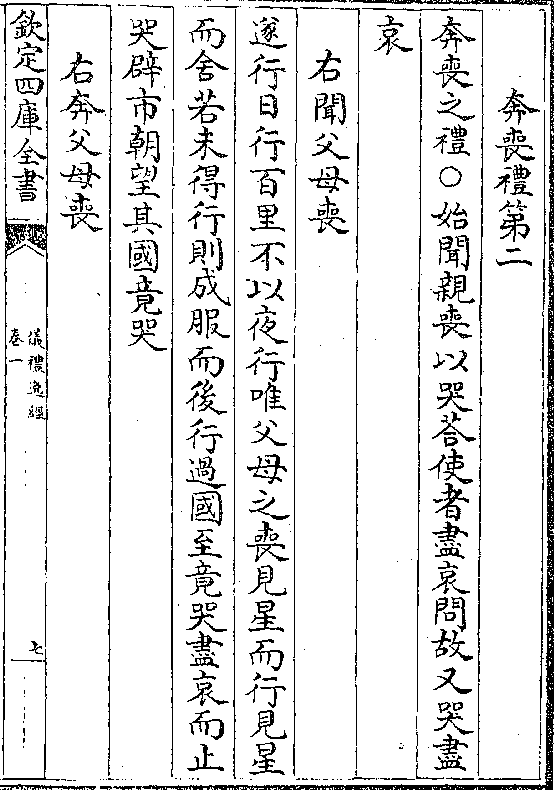 奔喪禮第二
奔喪之禮○始聞親喪以哭荅使者盡哀問故又哭盡
哀
右聞父母喪
遂行日行百里不以夜行唯父母之喪見星而行見星
而舍若未得行則成服而後行過國至竟哭盡哀而止
哭辟市朝望其國竟哭
右奔父母喪
欽定四庫全書
儀禮逸經
卷一
七